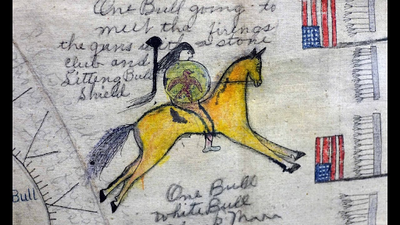 One Bull going to
meet the firings
the guns & stone
club and
Sitting Bull
Shield
Bull
One Bull
White Bull